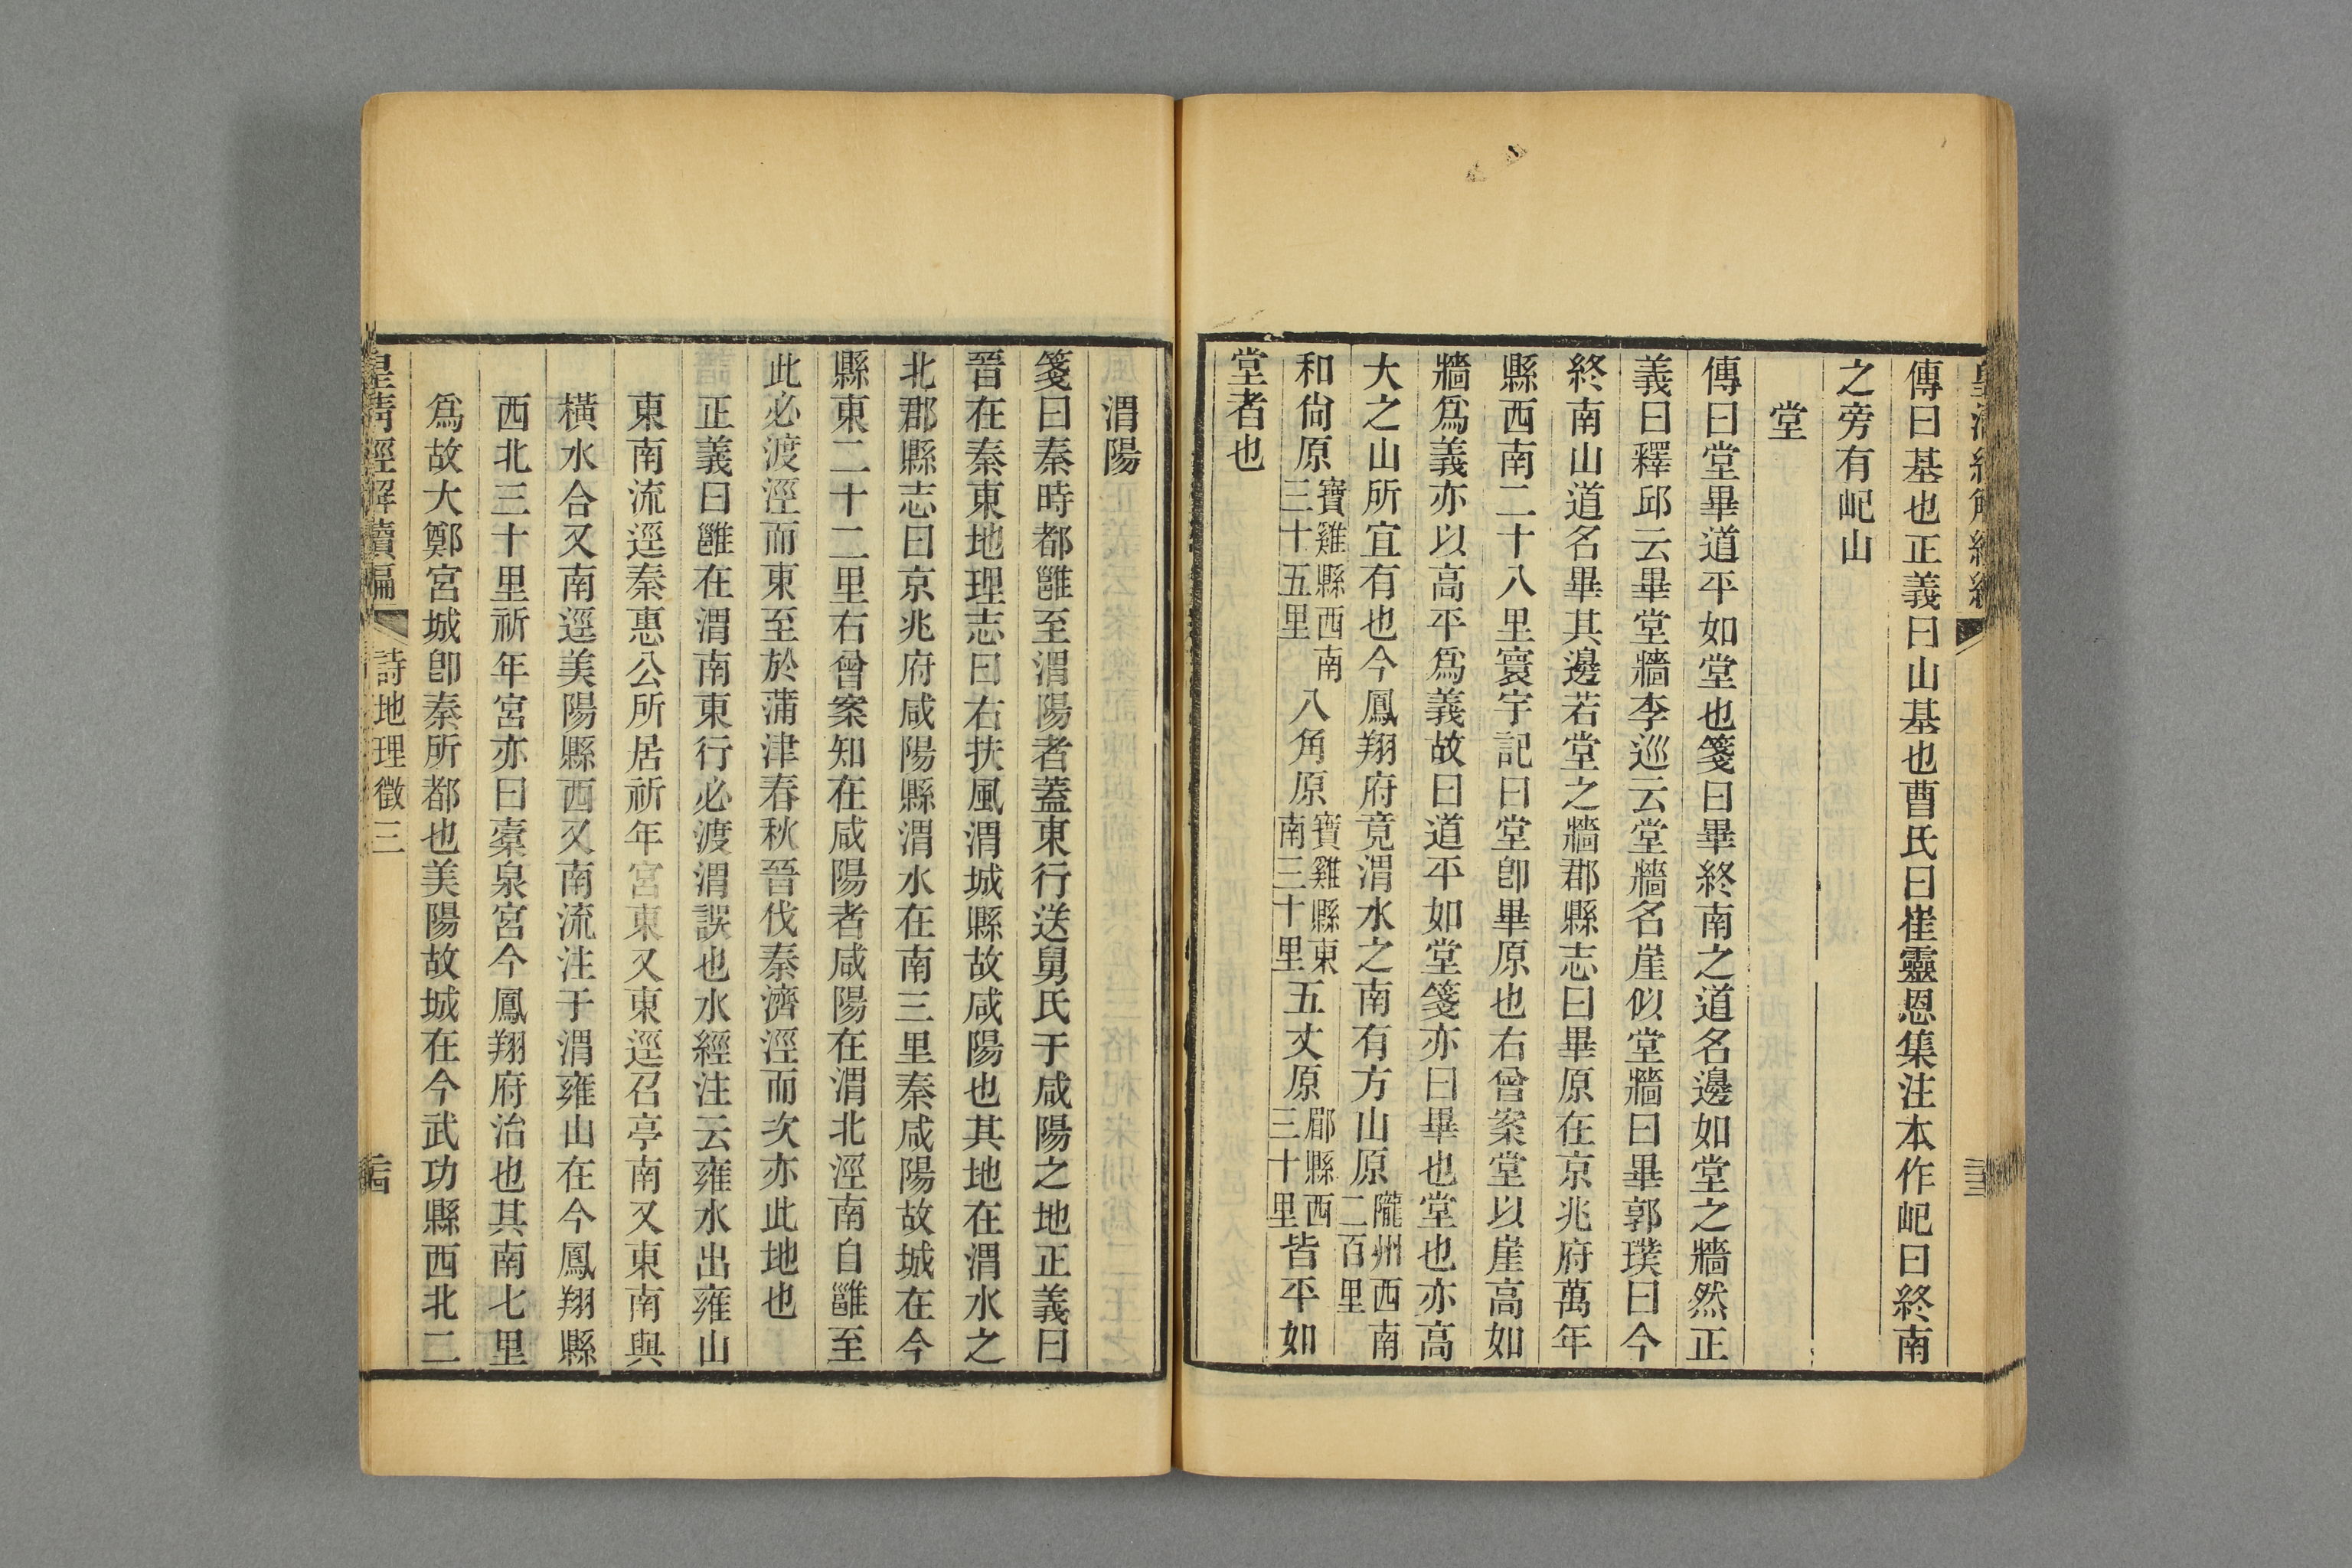 傳曰基也正義曰山基也曹氏曰崔靈恩集注本作屺曰終南
之旁有屺山
堂
傳曰堂畢道平如堂也箋曰畢終南之道名邊如堂之牆然正
義曰釋邱云畢堂牆李巡云堂牆名崖似堂牆曰畢郭璞曰今
終南山道名畢其邊若堂之牆郡縣志曰畢原在京兆府萬年
縣西南二十八里寰宇記曰堂卽畢原也右曾案堂以崖高如
牆爲義亦以高平爲義故曰道平如堂箋亦曰畢也堂也亦高
大之山所宜有也今鳳翔府竟渭水之南有方山原隴州西南二百里
和尙原寶雞縣西南三十五里八角原寶雞縣東南三十里五丈原郿縣西三十里皆平如
堂者也
渭陽
箋曰秦時都雝至渭陽者蓋東行送舅氏于咸陽之地正義曰
晉在秦東地理志曰右扶風渭城縣故咸陽也其地在渭水之
北郡縣志曰京兆府咸陽縣渭水在南三里秦咸陽故城在今
縣東二十二里右曾案知在咸陽者咸陽在渭北涇南自雝至
此必渡涇而東至於蒲津春秋晉伐秦濟涇而次亦此地也
正義曰雝在渭南東行必渡渭誤也水經注云雍水出雍山
東南流逕秦惠公所居祈年宮東又東逕召亭南又東南與
橫水合又南逕美陽縣西又南流注于渭雍山在今鳳翔縣
西北三十里祈年宮亦曰橐泉宮今鳳翔府治也其南七里
爲故大鄭宮城卽秦所都也美陽故城在今武功縣西北二
皇清經解續編
詩地理徵三